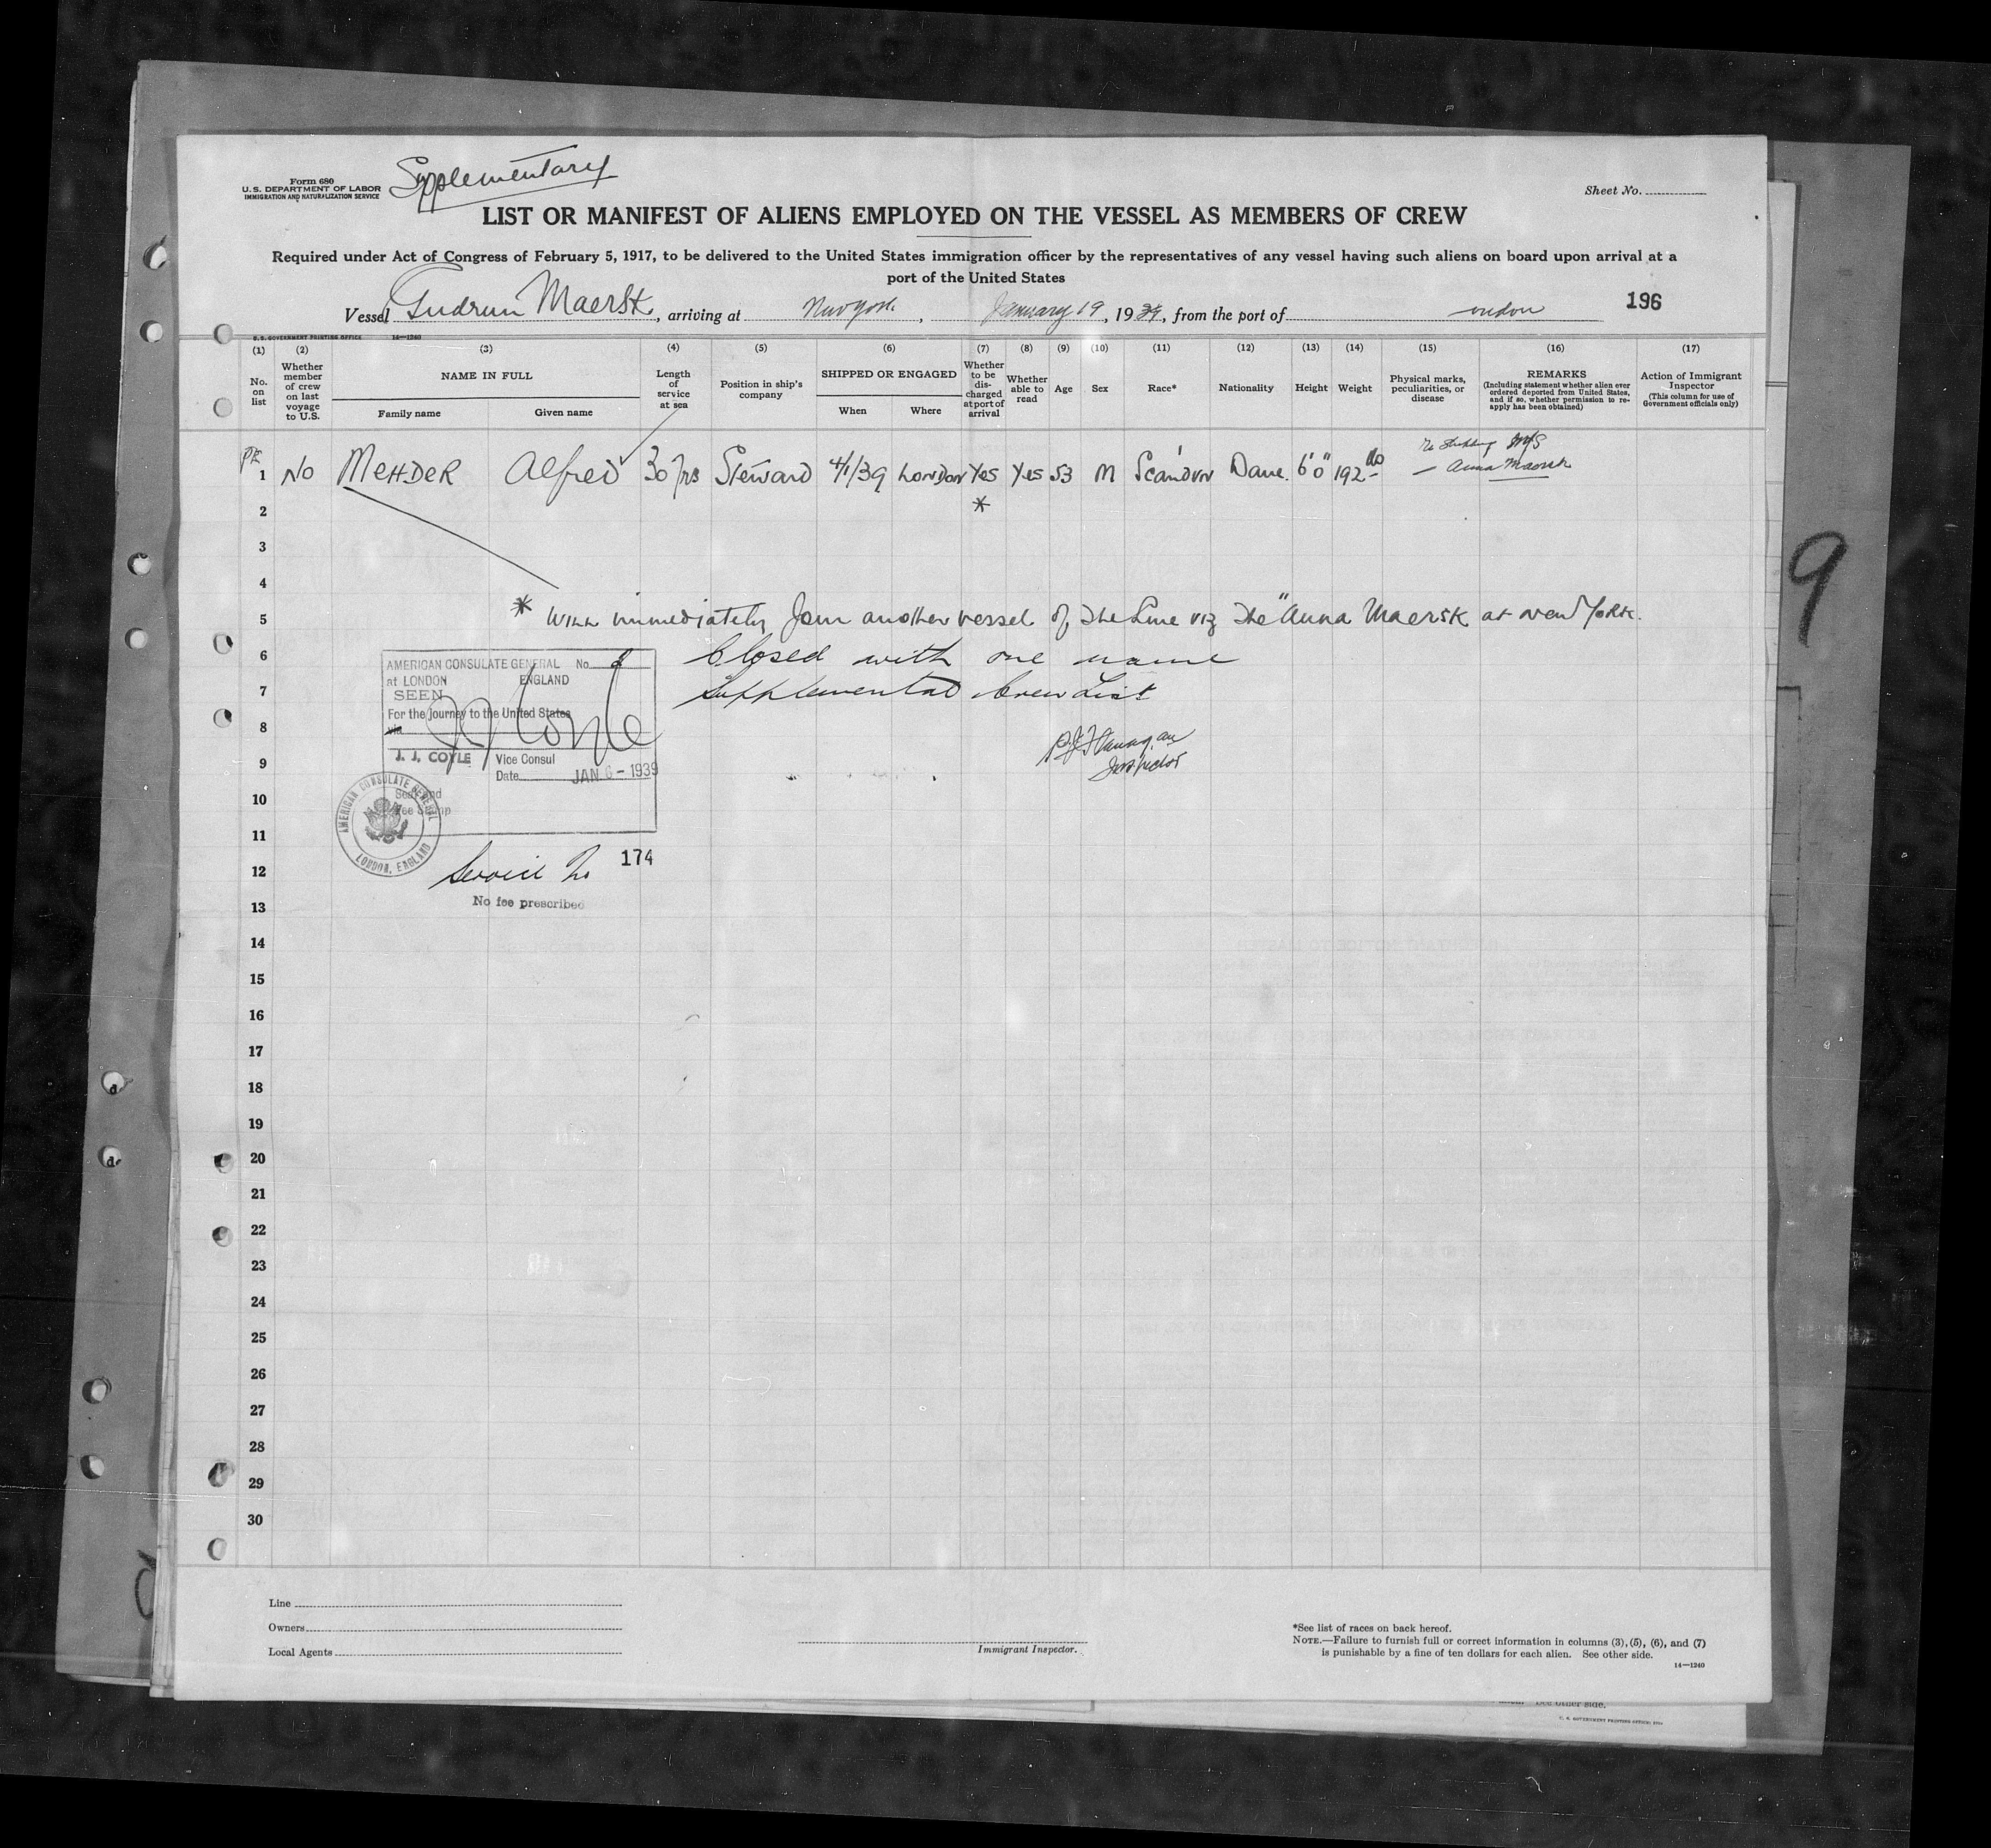 Form 680
U.S. DEPARTMENT OF LABOR
IMMIGRATION AND NATURALIZATION SERVICE
Supplementary
Sheet No.
LIST OR MANIFEST OF ALIENS EMPLOYED ON THE VESSEL AS MEMBERS OF CREW
Required under Act of Congress of February 5, 1917, to be delivered to the United States immigration officer by the representatives of any vessel having such aliens on board upon arrival at a
port of the United States
Vessel Gudrun Maersk, arriving at New York, January 19, 1939, from the port of ondon 196
U.S. GOVERNMENT PRINTING OFFICE 14—1240
(1) (2) (3) (4) (5) (6) (7) (8) (9) (10) (11) (12) (13) (14) (15) (16) (17)
No. on list
Whether member of crew on last voyage to U.S.
NAME IN FULL
Family name Given name
Length of service at sea
Position in ship's company
SHIPPED OR ENGAGED
When Where
Whether to be discharged at port of arrival
Whether able to read
Age
Sex
Race*
Nationality
Height
Weight
Physical marks, peculiarities, or disease
REMARKS
(Including statement whether alien ever ordered deported from United States, and if so, whether permission to re-apply has been obtained)
Action of Immigrant Inspector
(This column for use of Government officials only)
1 No MEHDER Alfred 30 yrs Steward 4/1/39 London Yes Yes 53 M Scandvn Dane 6'0" 192 lb M/S
— Anna Maersk
2 *
3
4
5 * Will immediately Join another vessel of The Line viz The "Anna Maersk at New York.
6 Closed with one name
7 Supplemental Crew List
8
9
Inspector
AMERICAN CONSULATE GENERAL No.
at LONDON ENGLAND
SEEN
For the journey to the United States
via
J. J. COYLE Vice Consul
Date JAN 6 - 1939
Seal and
Fee Stamp
AMERICAN CONSULATE GENERAL
LONDON, ENGLAND
10
11
12 Service No 174
13 No fee prescribed
14
15
16
17
18
19
20
21
22
23
24
25
26
27
28
29
30
9
Line
Owners
Local Agents
Immigrant Inspector.
*See list of races on back hereof.
NOTE.—Failure to furnish full or correct information in columns (3), (5), (6), and (7)
is punishable by a fine of ten dollars for each alien. See other side.
14—1240
See other side.